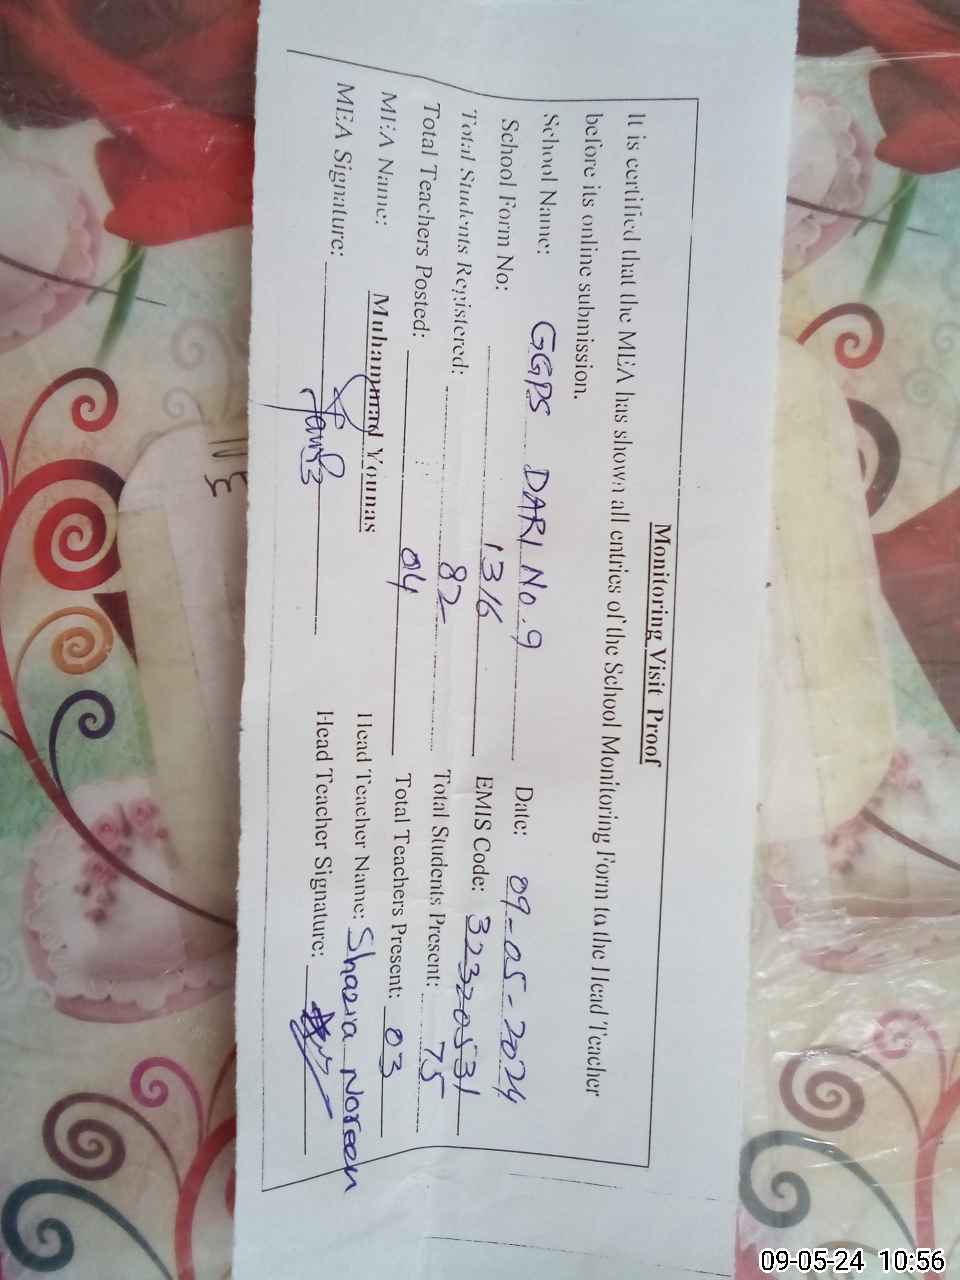 Monitoring Visit Proof
It is certified that the MEA has shown all entries of the School Monitoring Form to the Head Teacher
before its online submission.
School Name: GGPS DARI No.9 Date: 09-05-2024
School Form No: 1316 EMIS Code: 32320531
Total Students Registered: 82 Total Students Present: 75
Total Teachers Posted: 04 Total Teachers Present: 03
MEA Name: Muhammad Younas Head Teacher Name: Shazia Noreen
MEA Signature: Head Teacher Signature:
09-05-24 10:56